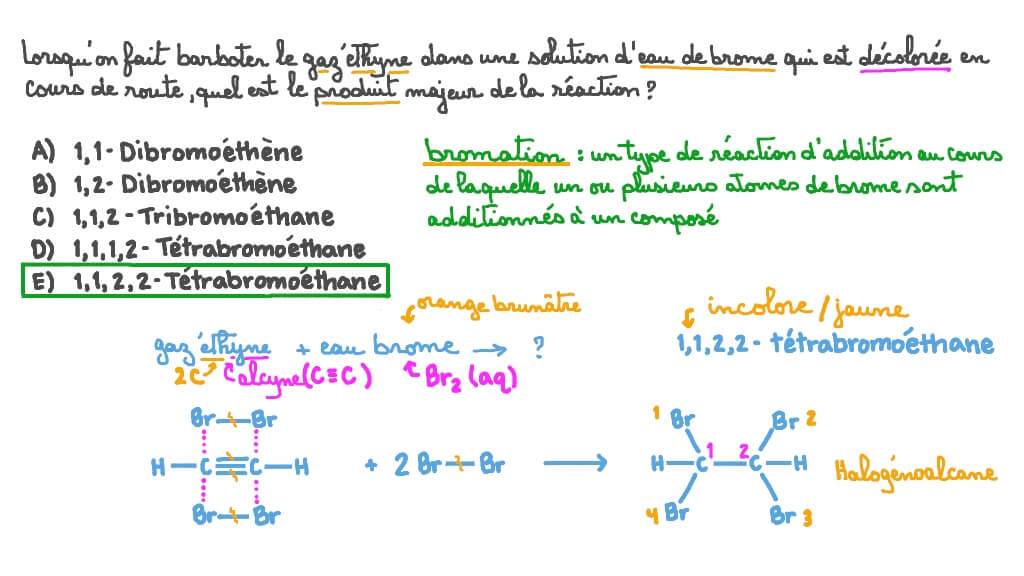 Lorsqu'on fait barboter le gaz éthyne dans une solution d'eau de brome qui est décolorée en
cours de route, quel est le produit majeur de la réaction ?
A) 1,1-Dibromoéthène
B) 1,2-Dibromoéthène
C) 1,1,2-Tribromoéthane
D) 1,1,1,2-Tétrabromoéthane
E) 1,1,2,2-Tétrabromoéthane
bromation : un type de réaction d'addition au cours
de laquelle un ou plusieurs atomes de brome sont
additionnés à un composé
orange brunâtre
incolore / jaune
gaz éthyne + eau brome → ?
1,1,2,2-tétrabromoéthane
2C alcyne (C≡C) Br₂ (aq)
Br—Br
1 Br Br 2
H—C≡C—H + 2 Br—Br → H—C—C—H
1 2
Halogénoalcane
Br—Br
4 Br Br 3